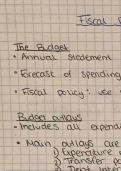 Fiscal
The Budget
• Annual statement
• Forecast of spending
• Fiscal policy: use
Budget outlays
• Includes all expend
• Main outlays are
1) Expenditure
2) Transfer pa
3) Debt inter